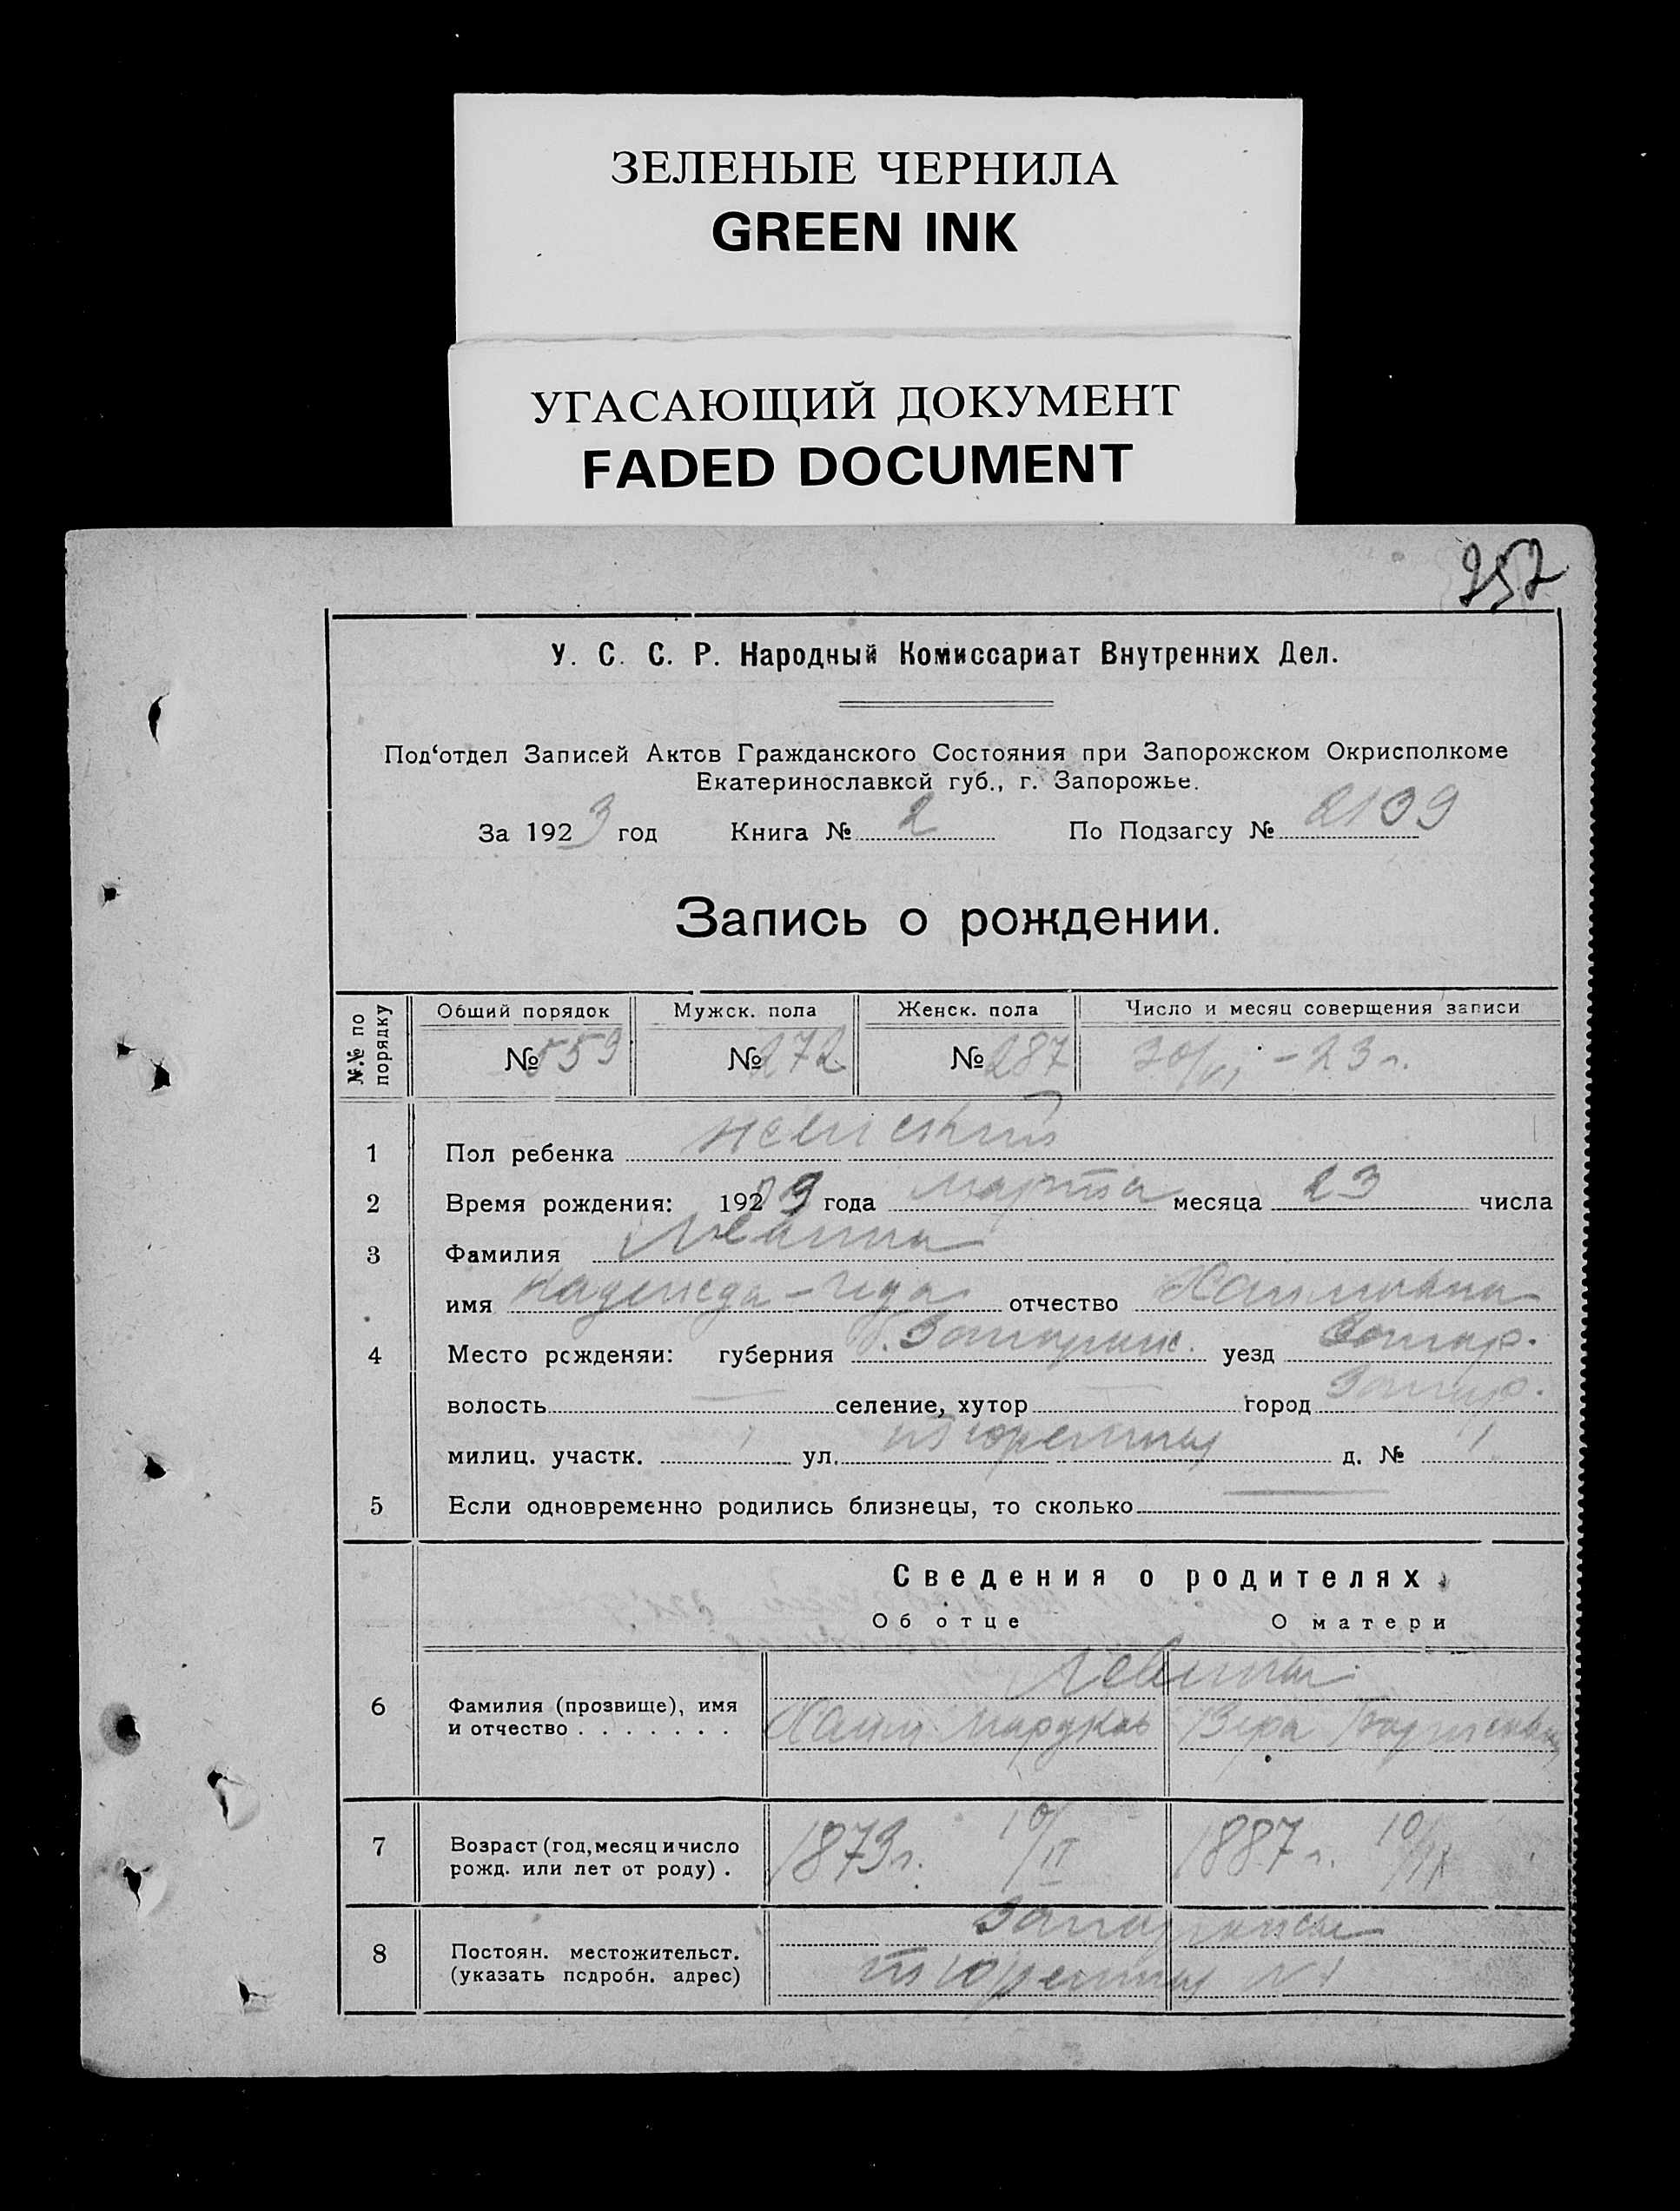 ЗЕЛЕНЫЕ ЧЕРНИЛА
GREEN INK
УГАСАЮЩИЙ ДОКУМЕНТ
FADED DOCUMENT
257
У. С. С. Р. Народный Комиссариат Внутренних Дел.
Под‘отдел Записей Актов Гражданского Состояния при Запорожском Окрисполкоме
Екатеринославкой губ., г. Запорожье.
За 1923 год Книга № 2 По Подзагсу № 2139
Запись о рождении.
№.№ по порядку Общий порядок Мужск. пола Женск. пола Число и месяц соверщения записи
№ 559 № 272 № 287 30/VI - 23 г.
1 Пол ребенка женский
2 Время рождения: 1923 года марта месяца 23 числа
3 Фамилия Левина
имя Надежда - отчество Хаимовна
4 Место рсжденяи: губерния Запорож. уезд Запор.
волость — селение, хутор — город Запор.
милиц. участк. 1 ул. тюремная д. № 1
5 Если одновременно родились близнецы, то сколько —
Сведения о родителях.
Об отце О матери
6 Фамилия (прозвище), имя и отчество . . . . . . . Левины
Хаим Вера Борисовна
7 Возраст (год, месяц и число рожд. или лет от роду) . 1873 г. 10/II 1887 г. 10/IX
8 Постоян. местожительст. (указать псдробн. адрес) Запорожье
тюремная № 1